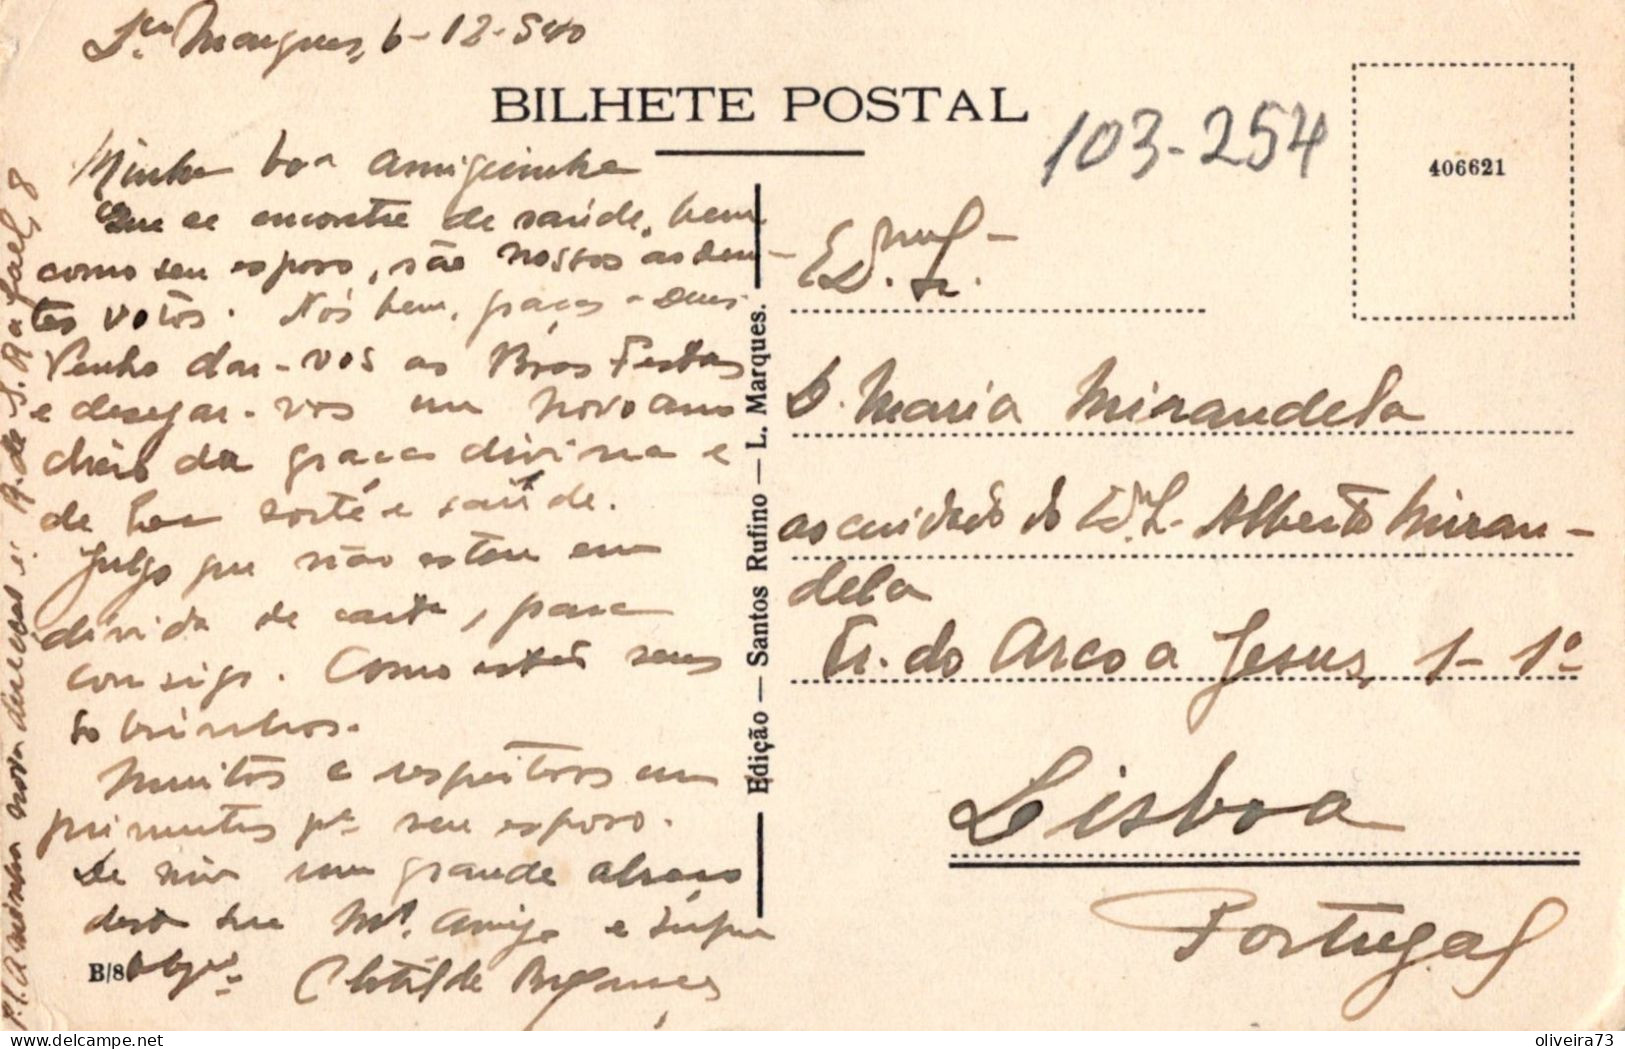 Lço Marques, 6-12-540
BILHETE POSTAL
103-254
406621
Minha boa amiguinha
Que se encontre de saúde, bem
como seu esposo, são nossos arden-
tes votos. Nós bem, graças a Deus.
Venho dar-vos as Boas Festas
e desejar-vos um novo ano
cheio da graça divina e
de boa sorte e saúde.
Julgo que não estou em
dívida de carta, para
consigo. Como estão seus
sobrinhos.
Muitos e respeitosos cum
primentos pª seu esposo.
De mim um grande abraço
desta sua Mª. Amiga e
Obgª.
Clotilde
B/8
P.S. A minha nova direcção é: R. de S. Rafael, 8
Edição — Santos Rufino — L. Marques.
Exmª
Sr.
D. Maria Mirandela
ao cuidado do Exmº Sr. Alberto Miran-
dela
Tr. do Arco a Jesus, 1-1º
Lisboa
Portugal
oliveira73